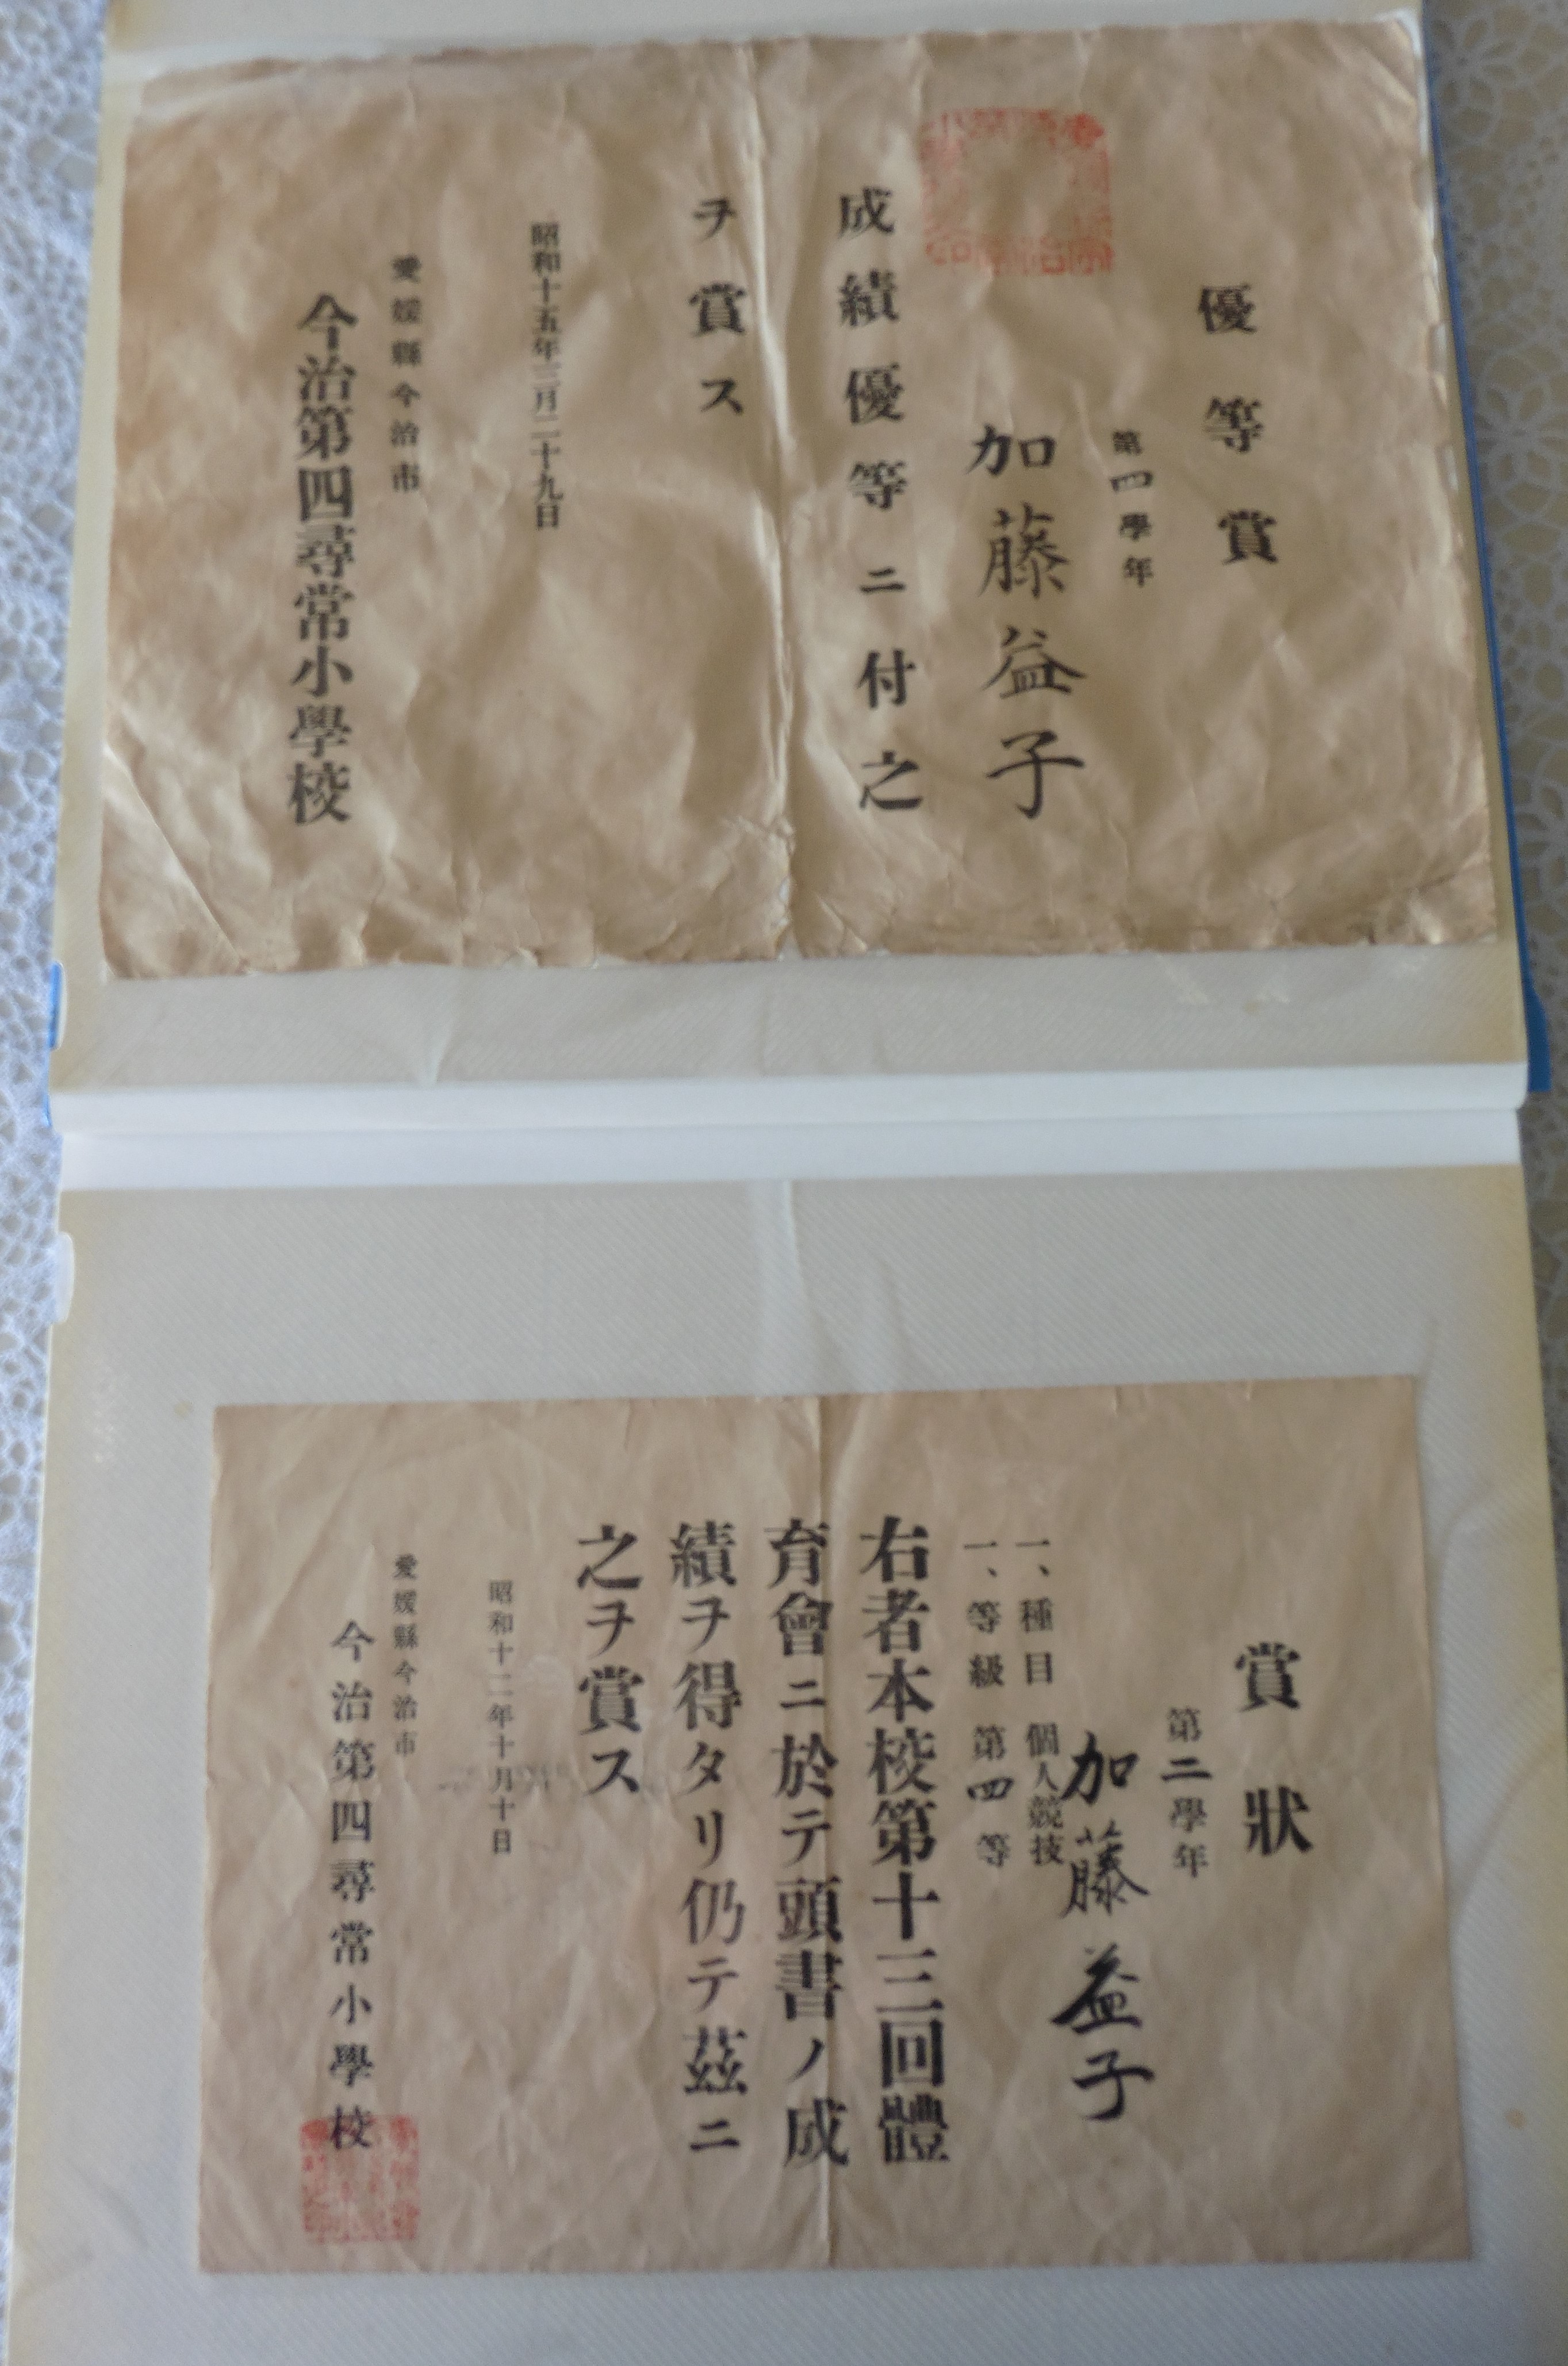 優等賞
第四學年
加藤益子
成績優等ニ付之
ヲ賞ス
昭和十五年三月二十九日
愛媛縣今治市
今治第四尋常小學校
賞狀
第二學年
加藤益子
一、種目 個人競技
一、等級 第四等
右者本校第十三回體
育會ニ於テ頭書ノ成
績ヲ得タリ仍テ茲ニ
之ヲ賞ス
昭和十二年十月十日
愛媛縣今治市
今治第四尋常小學校